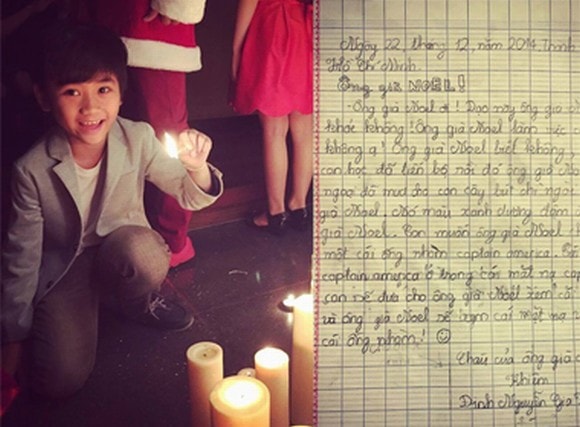 Ngày 22, tháng 12, năm 2014, Thành
Hồ Chí Minh.
Ông già NOEL!
Ông già Noel ơi! Dạo này ông có
khỏe không! Ông già Noel làm việc
không ạ! Ông già Noel biết không
con học đã tiến bộ nơi đó ông già
ngoại đã mua cho con cây bút chì ngoại
già Noel. Nó màu xanh dương đậm
già Noel. Con muốn ông già Noel
một cái ống nhòm captain america.
captain america ở trong cái mặt nạ cap
con sẽ đưa cho ông già Noel xem cái
và ông già Noel sẽ xem cái mặt nạ
cái ống nhòm!
Cháu của ông già
Khiêm
Đinh Nguyễn Gia